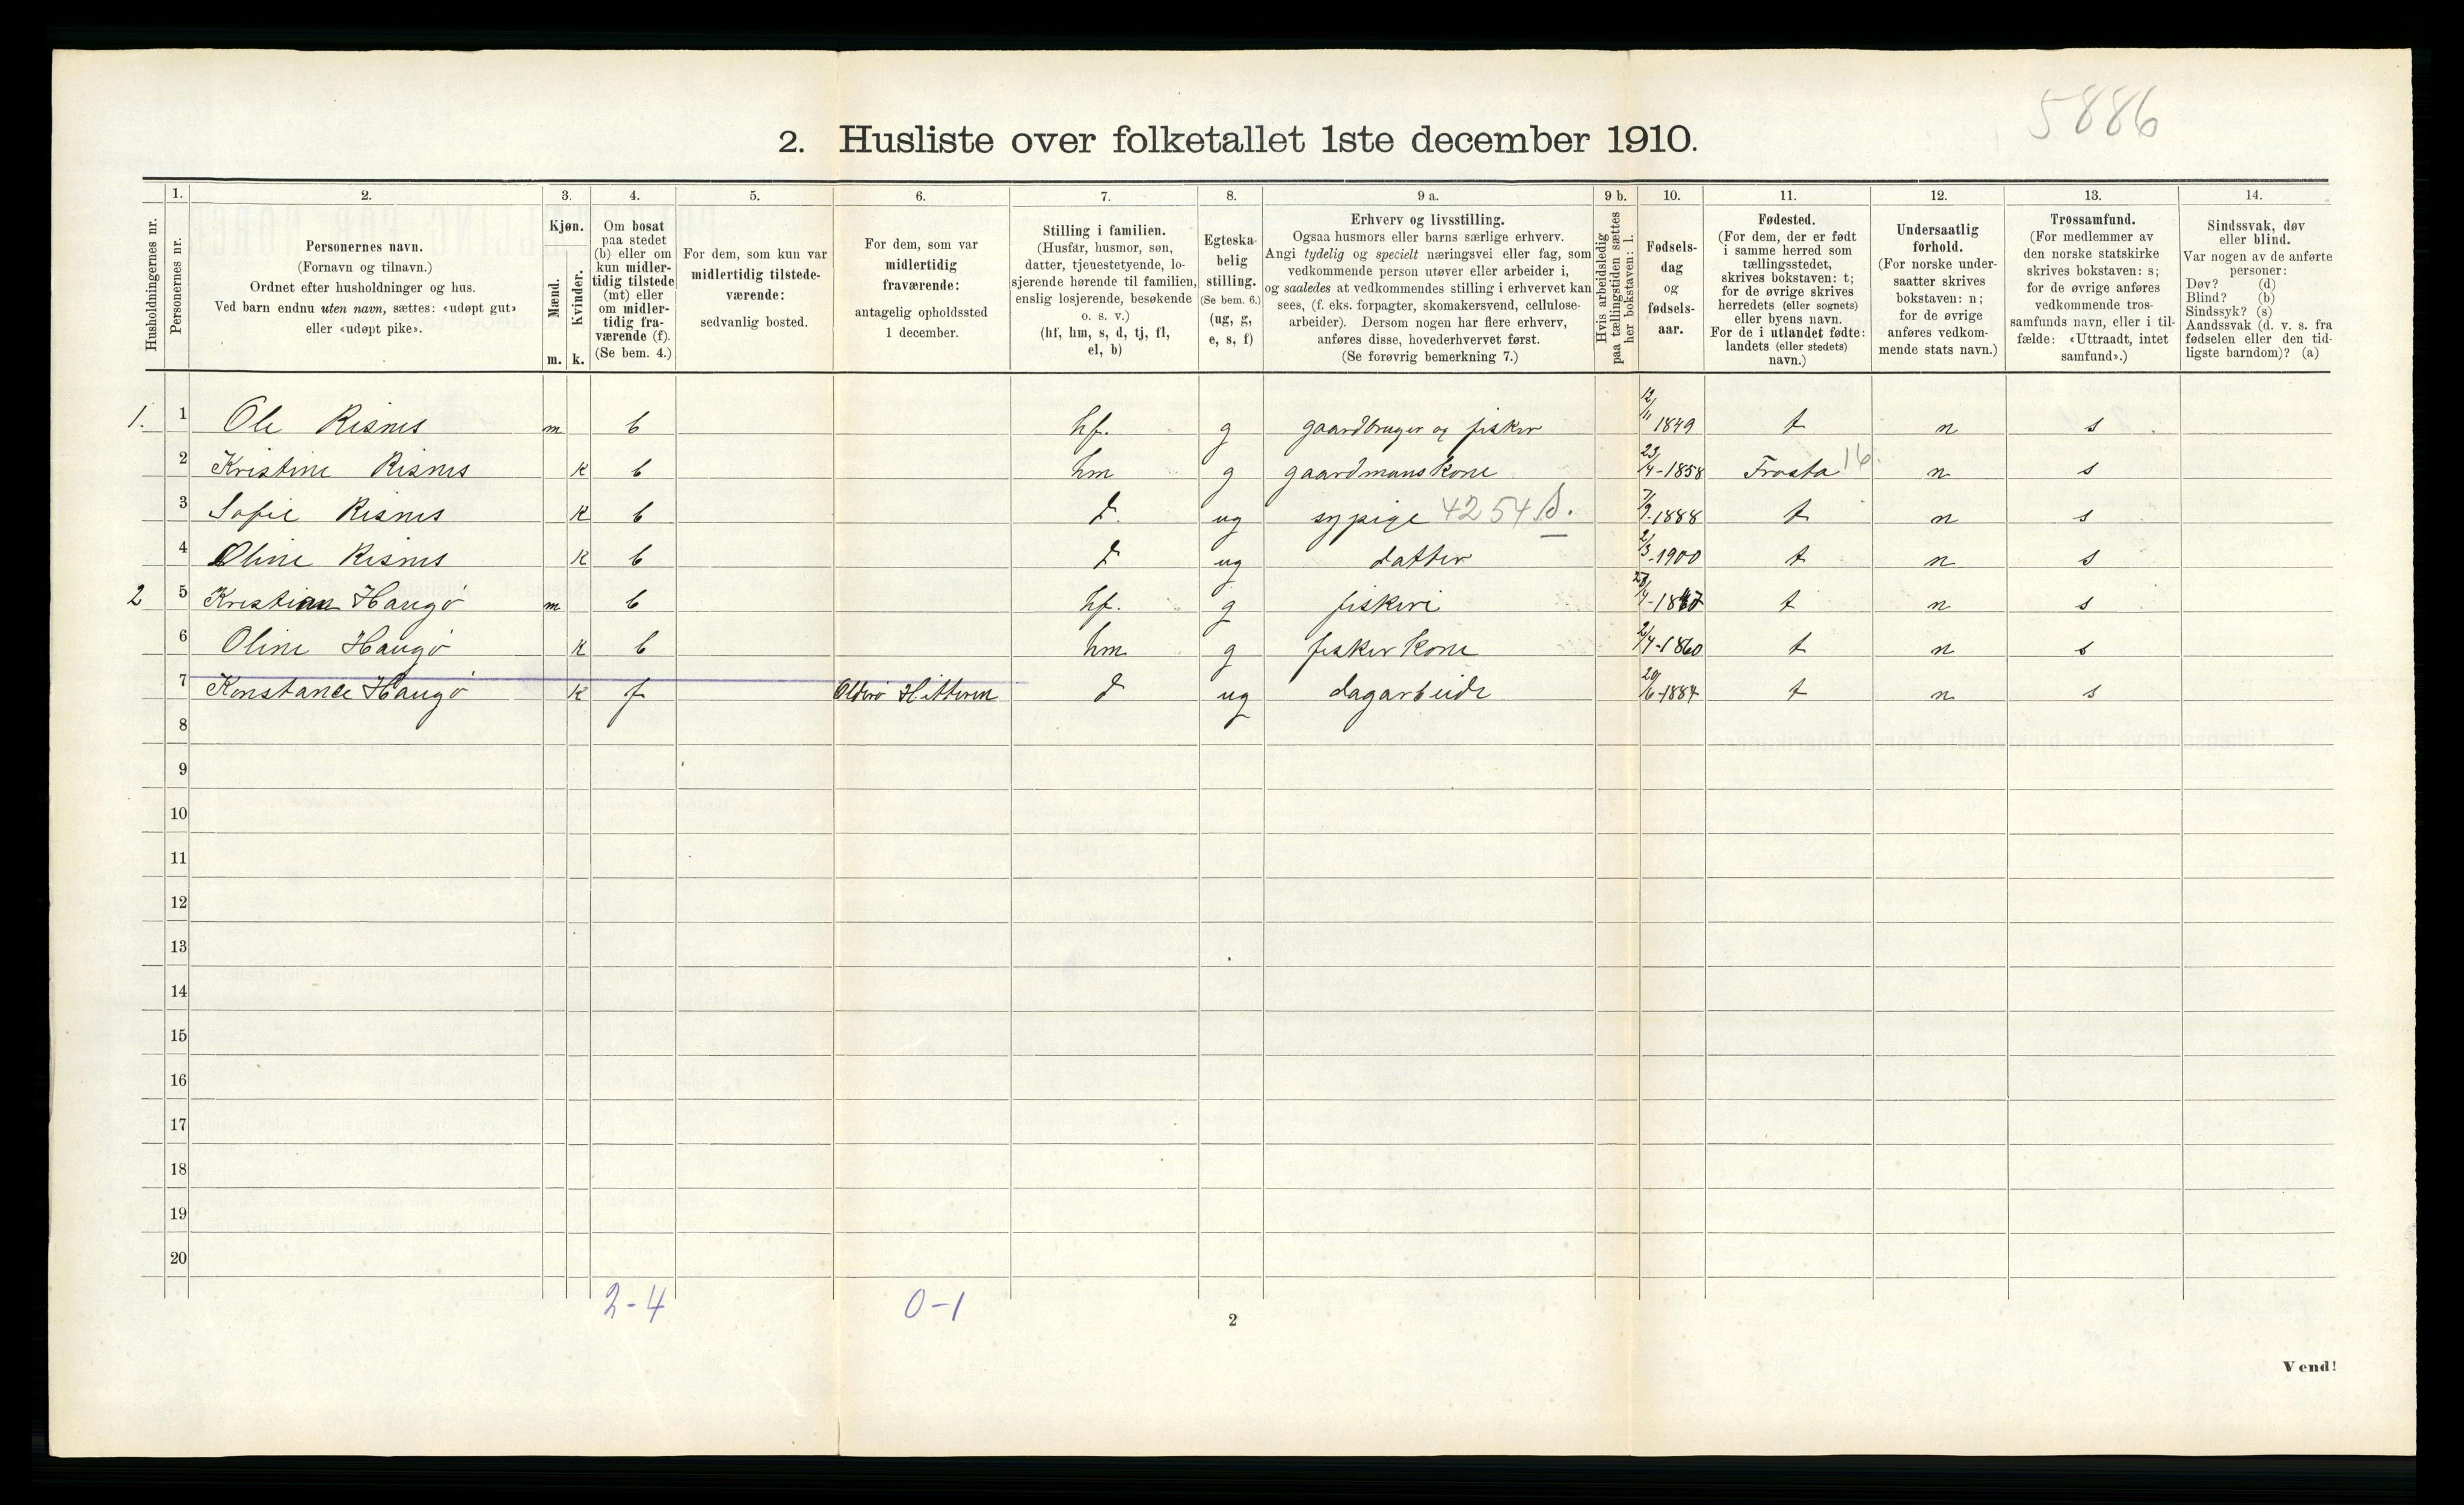 5886
2. Husliste over folketallet 1ste december 1910.
Husholdningernes nr.
1.
Personernes nr.
2.
Personernes navn.
(Fornavn og tilnavn.)
Ordnet efter husholdninger og hus.
Ved barn endnu uten navn, sættes: «udøpt gut»
eller «udøpt pike».
3.
Kjøn.
Mænd.
Kvinder.
m. k.
4.
Om bosat
paa stedet
(b) eller om
kun midler-
tidig tilstede
(mt) eller
om midler-
tidig fra-
værende (f).
(Se bem. 4.)
5.
For dem, som kun var
midlertidig tilstede-
værende:
sedvanlig bosted.
6.
For dem, som var
midlertidig
fraværende:
antagelig opholdssted
1 december.
7.
Stilling i familien.
(Husfar, husmor, søn,
datter, tjenestetyende, lo-
sjerende hørende til familien,
enslig losjerende, besøkende
o. s. v.)
(hf, hm, s, d, tj, fl,
el, b)
8.
Egteska-
belig
stilling.
(Se bem. 6.)
(ug, g,
e, s, f)
9 a.
Erhverv og livsstilling.
Ogsaa husmors eller barns særlige erhverv.
Angi tydelig og specielt næringsvei eller fag, som
vedkommende person utøver eller arbeider i,
og saaledes at vedkommendes stilling i erhvervet kan
sees, (f. eks. forpagter, skomakersvend, cellulose-
arbeider). Dersom nogen har flere erhverv,
anføres disse, hovederhvervet først.
(Se forøvrig bemerkning 7.)
9 b.
Hvis arbeidsledig
paa tællingstiden sættes
her bokstaven: l.
10.
Fødsels-
dag
og
fødsels-
aar.
11.
Fødested.
(For dem, der er født
i samme herred som
tællingsstedet,
skrives bokstaven: t;
for de øvrige skrives
herredets (eller sognets)
eller byens navn.
For de i utlandet fødte:
landets (eller stedets)
navn.)
12.
Undersaatlig
forhold.
(For norske under-
saatter skrives
bokstaven: n;
for de øvrige
anføres vedkom-
mende stats navn.)
13.
Trossamfund.
(For medlemmer av
den norske statskirke
skrives bokstaven: s;
for de øvrige anføres
vedkommende tros-
samfunds navn, eller i til-
fælde: «Uttraadt, intet
samfund».)
14.
Sindssvak, døv
eller blind.
Var nogen av de anførte
personer:
Døv? (d)
Blind? (b)
Sindssyk? (s)
Aandssvak (d. v. s. fra
fødselen eller den tid-
ligste barndom)? (a)
1. 1 Ole Risnes m b hf. g gaardbruger og fisker 12/11 1849 t n s
2 Kristine Risnes k b hm g gaardmanskone 23/4-1858 Frosta 16 n s
3 Sofie Risnes k b d. ug sypige 4254 7/9-1888 t n s
4 Oline Risnes k b d ug datter 2/3-1900 t n s
2 5 Kristian Haugø m b hf. g fiskeri t n s
6 Oline Haugø k b hm g fiskerkone 2/4-1860 t n s
7 Konstance Haugø k f Hitteren d ug dagarbeide 20/6-1884 t n s
8
9
10
11
12
13
14
15
16
17
18
19
20
2-4 0-1
2
Vend!